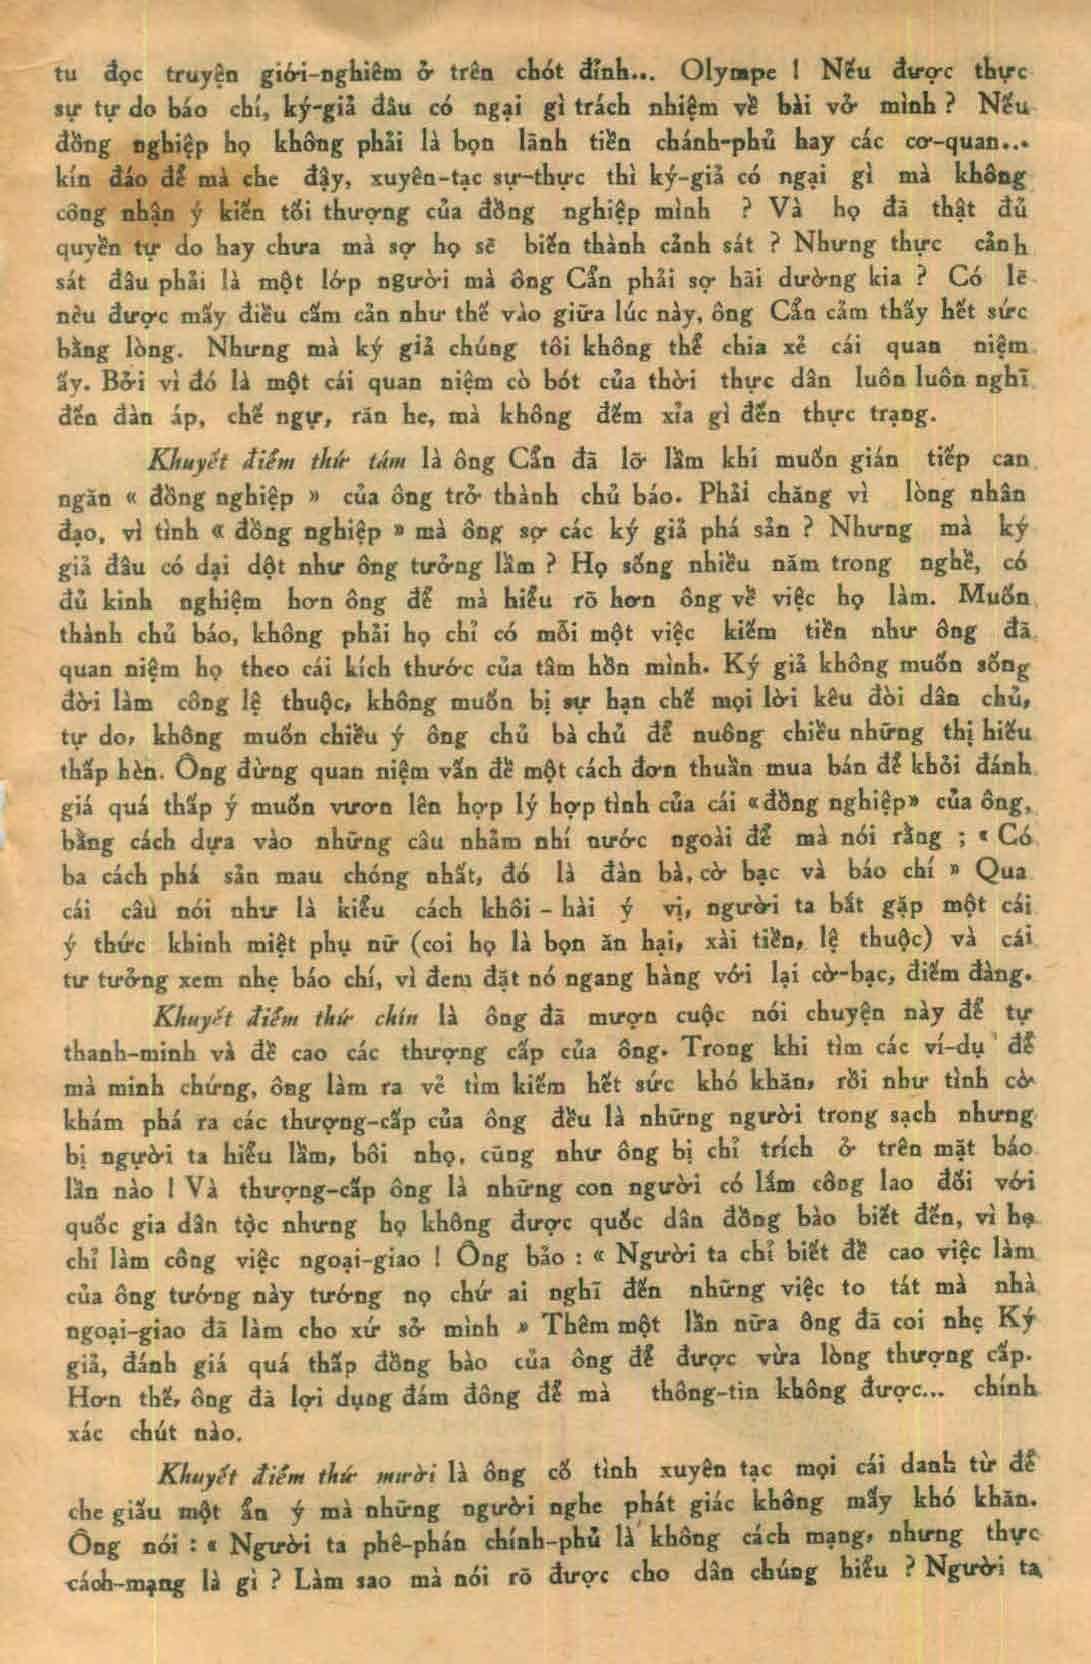 tu đọc truyện giới-nghiêm ở trên chót đỉnh... Olympe ! Nếu được thực
sự tự do báo chí, ký-giả đâu có ngại gì trách nhiệm về bài vở mình ? Nếu
đồng nghiệp họ không phải là bọn lãnh tiền chánh-phủ hay các cơ-quan...
kín đáo để mà che đậy, xuyên-tạc sự-thực thì ký-giả có ngại gì mà không
công nhận ý kiến tối thượng của đồng nghiệp mình ? Và họ đã thật đủ
quyền tự do hay chưa mà sợ họ sẽ biến thành cảnh sát ? Nhưng thực cảnh
sát đâu phải là một lớp người mà ông Cẩn phải sợ hãi dường kia ? Có lẽ
nếu được mấy điều cấm cản như thế vào giữa lúc này, ông Cẩn cảm thấy hết sức
bằng lòng. Nhưng mà ký giả chúng tôi không thể chia xẻ cái quan niệm
ấy. Bởi vì đó là một cái quan niệm cò bót của thời thực dân luôn luôn nghĩ
đến đàn áp, chế ngự, răn he, mà không đếm xỉa gì đến thực trạng.
Khuyết điểm thứ tám là ông Cẩn đã lỡ lầm khi muốn gián tiếp can
ngăn « đồng nghiệp » của ông trở thành chủ báo. Phải chăng vì lòng nhân
đạo, vì tình « đồng nghiệp » mà ông sợ các ký giả phá sản ? Nhưng mà ký
giả đâu có dại dột như ông tưởng lầm ? Họ sống nhiều năm trong nghề, có
đủ kinh nghiệm hơn ông để mà hiểu rõ hơn ông về việc họ làm. Muốn
thành chủ báo, không phải họ chỉ có mỗi một việc kiếm tiền như ông đã
quan niệm họ theo cái kích thước của tâm hồn mình. Ký giả không muốn sống
đời làm công lệ thuộc, không muốn bị sự hạn chế mọi lời kêu đòi dân chủ,
tự do, không muốn chiều ý ông chủ bà chủ để nuông chiều những thị hiếu
thấp hèn. Ông đừng quan niệm vấn đề một cách đơn thuần mua bán để khỏi đánh
giá quá thấp ý muốn vươn lên hợp lý hợp tình của cái «đồng nghiệp» của ông,
bằng cách dựa vào những câu nhảm nhí nước ngoài để mà nói rằng ; « Có
ba cách phá sản mau chóng nhất, đó là đàn bà, cờ bạc và báo chí » Qua
cái câu nói như là kiểu cách khôi - hài ý vị, người ta bắt gặp một cái
ý thức khinh miệt phụ nữ (coi họ là bọn ăn hại, xài tiền, lệ thuộc) và cái
tư tưởng xem nhẹ báo chí, vì đem đặt nó ngang hàng với lại cờ-bạc, điếm đàng.
Khuyết điểm thứ chín là ông đã mượn cuộc nói chuyện này để tự
thanh-minh và đề cao các thượng cấp của ông. Trong khi tìm các ví-dụ để
mà minh chứng, ông làm ra vẻ tìm kiếm hết sức khó khăn, rồi như tình cờ
khám phá ra các thượng-cấp của ông đều là những người trong sạch nhưng
bị người ta hiểu lầm, bôi nhọ, cũng như ông bị chỉ trích ở trên mặt báo
lần nào ! Và thượng-cấp ông là những con người có lắm công lao đối với
quốc gia dân tộc nhưng họ không được quốc dân đồng bào biết đến, vì họ
chỉ làm công việc ngoại-giao ! Ông bảo : « Người ta chỉ biết đề cao việc làm
của ông tướng này tướng nọ chứ ai nghĩ đến những việc to tát mà nhà
ngoại-giao đã làm cho xứ sở mình » Thêm một lần nữa ông đã coi nhẹ Ký
giả, đánh giá quá thấp đồng bào của ông để được vừa lòng thượng cấp.
Hơn thế, ông đã lợi dụng đám đông để mà thông-tin không được... chính
xác chút nào.
Khuyết điểm thứ mười là ông cố tình xuyên tạc mọi cái danh từ để
che giấu một ẩn ý mà những người nghe phát giác không mấy khó khăn.
Ông nói : « Người ta phê-phán chính-phủ là không cách mạng, nhưng thực
cách-mạng là gì ? Làm sao mà nói rõ được cho dân chúng hiểu ? Người ta